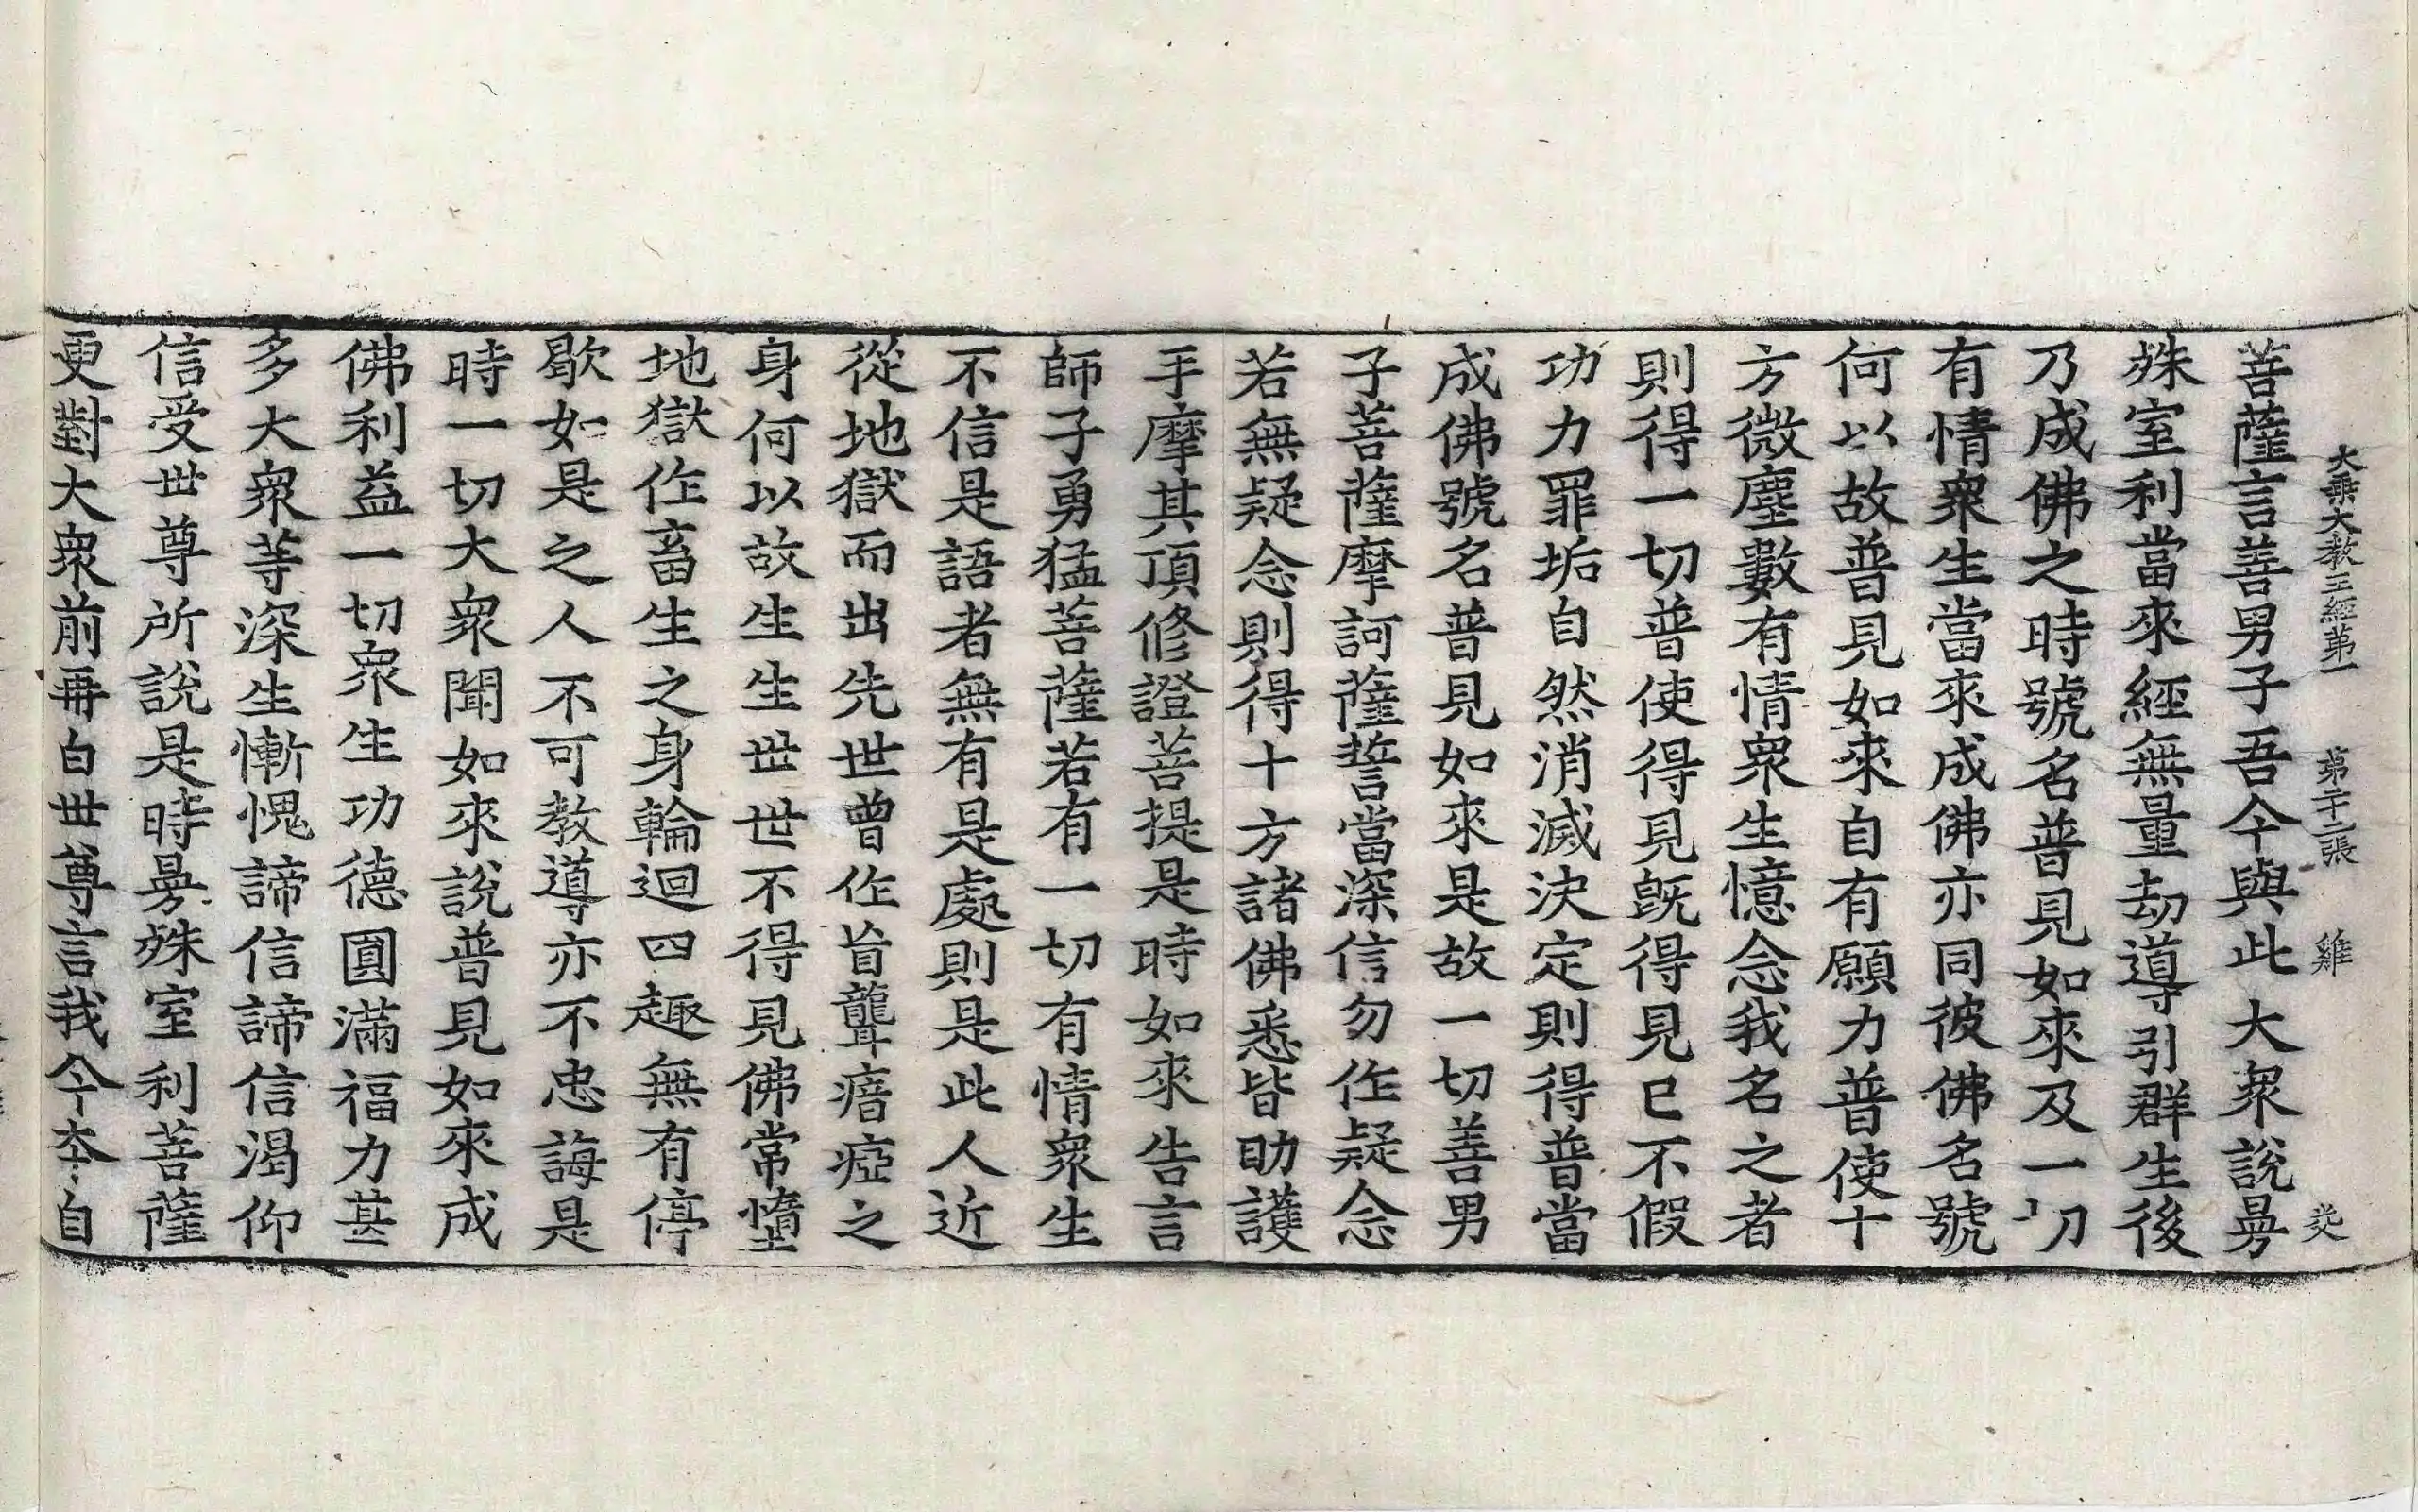 大乗大教王經第一 第二十二張 雞 癹
菩薩言善男子吾今與此大衆說曼
殊室利當來經無量劫導引群生後
乃成佛之時號名普見如來及一切
有情衆生當來成佛亦同彼佛名號
何以故普見如來自有願力普使十
方微塵數有情衆生憶念我名之者
則得一切普使得見旣得見已不假
功力罪垢自然消滅決定則得普當
成佛號名普見如來是故一切善男
子菩薩摩訶薩誓當深信勿作疑念
若無疑念則得十方諸佛悉皆助護
手摩其頂修證菩提是時如來告言
師子勇猛菩薩若有一切有情衆生
不信是語者無有是處則是此人近
從地獄而出先世曾作盲聾瘖瘂之
身何以故生生世世不得見佛常墮
地獄作畜生之身輪迴四趣無有停
歇如是之人不可教導亦不忠誨是
時一切大衆聞如來說普見如來成
佛利益一切衆生功德圓滿福力甚
多大衆等深生慚愧諦信諦信渴仰
信受世尊所說是時曼殊室利菩薩
更對大衆前再白世尊言我今本自